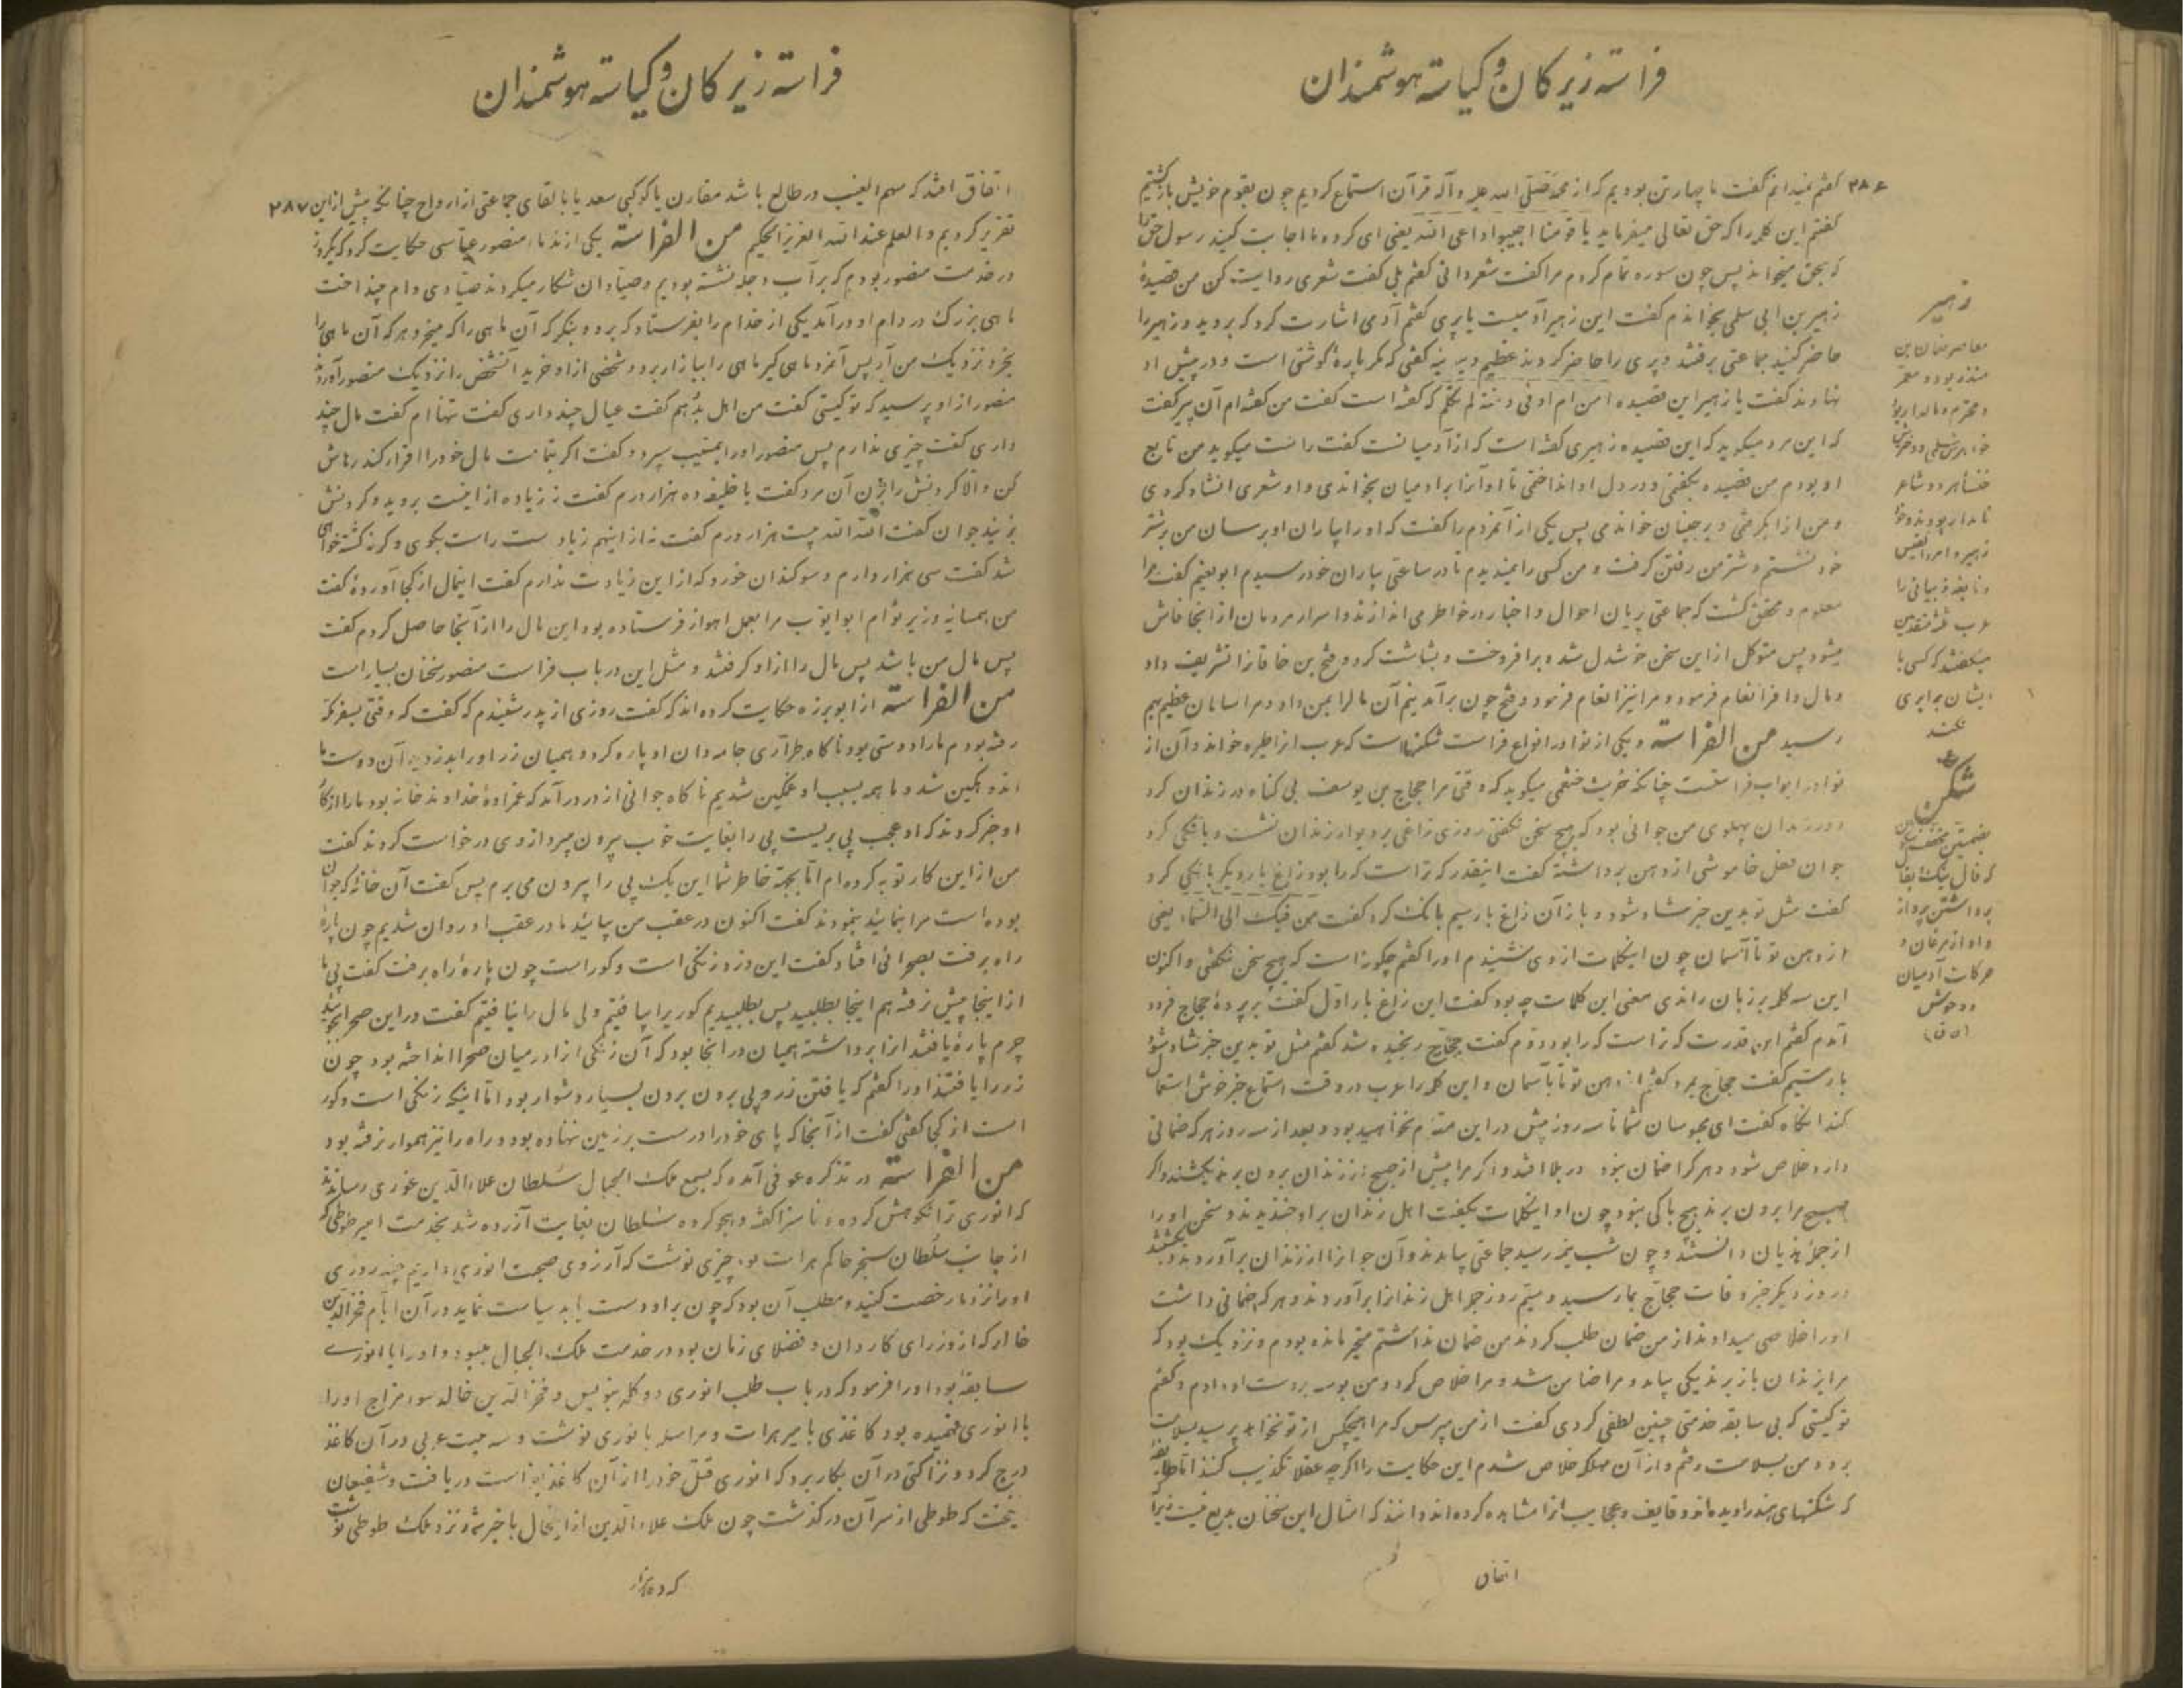 فراسته زیرکان و کیاسته هوشمندان
۲۸۶
گفتم نمیدانم گفت ما چهار تن بودیم که از محمد صلی الله علیه و آله قرآن استماع کردیم چون بقوم خویش بازگشتیم
گفتیم این کلمه را که حق تعالی میفرماید یا قومنا اجیبوا داعی الله یعنی ای گروه ما اجابت کنید رسول حق را
که بحق میخواند پس چون سوره تمام کردم مرا گفت شعر دانی گفتم بلی گفت شعری روایت کن من قصیدهٔ
زهیر بن ابی سلمی بخواندم گفت این زهیر آدمیست یا پری گفتم آدمی اشارت کرد که بروید و زهیر را
حاضر کنید جماعتی برفتند و پری را حاضر کردند عظیم و پیر گفتی که مگر پارهٔ گوشتی است و در پیش او
نهادند گفت یا زهیر این قصیده امن ام اوفی دمنة لم تکلم که گفته است گفت من گفته ام آن پیر گفت
که این مرد میگوید که این قصیده زهیری گفته است که از آدمیانست گفت راست میگوید من تابع
او بودم من قصیده بگفتمی و در دل او انداختمی تا او آنرا بر آدمیان بخواندی و او شعری انشاد کردی
و من از او بگرفتی و بر جنیان خواندمی پس یکی از آنمردم را گفت که او را بیاران او برسان من بر شتر
خود نشستم و شتر من رفتن گرفت و من کسی را نمیدیدم تا در ساعتی بیاران خود رسیدم ابو نعیم گفت مرا
معلوم و محقق گشت که جماعتی پریان احوال و اخبار در خاطر می اندازند و اسرار مردمان از اینجا فاش
میشود پس متوکل از این سخن خوشدل شد و برافروخت و بشاشت کرد و فتح بن خاقانرا تشریف داد
و مال وافر انعام فرمود و مرا نیز انعام فرمود و فتح چون برآمدیم آن مال را بمن داد و مرا سامان عظیم بهم
رسید من الفراسته و یکی از نوادر انواع فراست شگنهاست که عرب آنرا طیره خواند و آن از
نوادر ابواب فراستست چنانکه حریث خثعمی میگوید که وقتی مرا حجاج بن یوسف بی گناه در زندان کرد
و در زندان پهلوی من جوانی بود که هیچ سخن نگفتی روزی زاغی بر دیوار زندان نشست و بانگی کرد
جوان قفل خاموشی از دهن برداشته گفت اینقدر که تراست که را بود زاغ بار دیگر بانگی کرد
گفت مثل تو بدین خبر شاد شود و باز آن زاغ بار سیم بانگ کرد گفت من فیک الی السماء یعنی
از دهن تو تا آسمان چون اینکلمات از وی شنیدم او را گفتم چگونه است که هیچ سخن نگفتی و اکنون
این سه کلمه بر زبان راندی معنی این کلمات چه بود گفت این زاغ بار اول گفت بر پردهٔ حجاج فرود
آمدم گفتم این قدرت که تراست که را بود دوم گفت حجاج رنجیده شد گفتم مثل تو بدین خبر شاد شود
بار سیم گفت حجاج بمرد گفتم از دهن تو تا بآسمان و این کلمه را عرب در وقت استماع خبر خوش استعمال
کنند آنگاه گفت ای محبوسان شما تا سه روز بیش در این مقام نخواهید بود و بعد از سه روز هر که ضمانی
دارد خلاص شود و هر که را ضمان نبود در بلا افتد و اگر مرا پیش از صبح از زندان برون برند بکشند و اگر
صبح مرا برون برند هیچ باکی نبود چون او اینکلمات بگفت اهل زندان بر او خندیدند و سخن او را
از جملهٔ هذیان دانستند و چون شب نیمه رسید جماعتی بیامدند و آن جوانرا از زندان برآوردند و بکشتند
در روز دیگر خبر وفات حجاج بما رسید و سیم روز جمله اهل زندانرا برآوردند و هر که ضمانی داشت
او را خلاصی میدادند از من ضمان طلب کردند من ضمان نداشتم متحیر مانده بودم و نزدیک بود که
مرا بزندان باز برند یکی بیامد و مرا ضامن شد و مرا خلاص کرد و من بوسه بر دست او دادم و گفتم
تو کیستی که بی سابقه خدمتی چنین لطفی کردی گفت از من مپرس که مرا هیچکس از تو نخواهد پرسید بسلامت
برو و من بسلامت رفتم و از آن مهلکه خلاص شدم این حکایت را اگر چه عقلا تکذیب کنند اما طایفهٔ
که شگنهای هند را دیده اند و قایف و عجایب آنرا مشاهده کرده اند دانند که امثال این سخنان بدیع نیست زیرا
اتفاق
زهیر
معاصر نعمان بن
منذر بوده و معمر
و محترم و مالدار بود
خواهرش سلمی و دخترش
خنساء هر دو شاعر
نامدار بودند و
زهیر و امرء القیس
و نابغه ذبیانی را
عرب
میگفتند که کسی با
ایشان برابری
نکند
شگن
بضمتین مخفف شگون
که فال نیک
برداشتن پرواز
و آواز مرغان و
حرکات آدمیان
و وحوش
(ن ق)
فراسته زیرکان و کیاسته هوشمندان
۲۸۷
اتفاق افتد که سهم الغیب در طالع باشد مقارن با کوکبی سعد یا با لقای جماعتی از ارواح چنانکه پیش از این
تقریر کردیم والعلم عند الله العزیز الحکیم من الفراسته یکی از ندماء منصور عباسی حکایت کرد که یکروز
در خدمت منصور بودم که بر آب دجله نشسته بودیم و صیادان شکار میکردند صیادی دام میانداخت
ماهی بزرگ در دام او درآمد یکی از خدام را بفرستاد که برو و بنگر که آن ماهی را که میخرد هر که آن ماهی را
بخرد نزدیک من آر پس آنمرد ماهی گیر ماهی را ببازار برد و شخصی از او خرید آنشخص را نزدیک منصور آوردند
منصور از او پرسید که تو کیستی گفت من اهل گفت عیال چند داری گفت تنهاام گفت مال چند
داری گفت چیزی ندارم پس منصور او را بمسیب سپرد و گفت اگر بتمامت مال خود را اقرار کند رهاش
کن والا گردنش را بزن آن مرد گفت یا خلیفه ده هزار درم گفت نه زیاده از اینست بروید و گردنش
بزنید جوان گفت الله الله بیست هزار درم گفت نه از اینهم زیاد است راست بگوی و گرنه کشته خواهی
شد گفت سی هزار دارم و سوگندان خورد که از این زیادت ندارم گفت اینمال از کجا آوردهٔ گفت
من همسایه وزیر توام ابو ایوب مرا بعمل اهواز فرستاده بود این مال را از آنجا حاصل کردم گفت
پس مال من باشد پس مال را از او گرفتند و مثل این در باب فراست منصور سخنان بسیار است
من الفراسته از ابو برزه حکایت کرده اند که گفت روزی از پدر شنیدم که گفت که وقتی بسفر مکه
رفته بودم ما را دوستی بود ناگاه طرّاری جامه دان او پاره کرد و همیان زر او را بدزدید آن دوست ما
اندوهگین شد و ما همه بسبب او غمگین شدیم ناگاه جوانی از در درآمد که عمزادهٔ خداوند خانه بود ما را از کار
او خبر کردند که او عجب پی بریست پی را بغایت خوب بیرون میبرد از وی درخواست کردند گفت
من از این کار توبه کرده ام اما بجهة خاطر شما این یک پی را بیرون می برم پس گفت آن خانهٔ که جوان
بوده است مرا بنمائید بنمودند گفت اکنون در عقب من بیائید ما در عقب او روان شدیم چون پارهٔ
راه برفت بصحرائی افتاد گفت این دزد زنگی است و کور است چون پارهٔ راه برفت گفت پی ما
از اینجا پیش نرفته هم اینجا بطلبید پس بطلبیدیم کور را بیافتیم ولی مال را نیافتیم گفت در این صحرا بجوئید
چرم پارهٔ یافتند آنرا برداشته همیان در آنجا بود که آن زنگی آنرا در میان صحرا انداخته بود چون
زر را یافتند او را گفتم که یافتن زر و پی برون بردن بسیار دشوار بود اما اینکه زنگی است و کور
است از کجا گفتی گفت از آنجا که پای خود را درست بر زمین ننهاده بود و راه را نیز هموار نرفته بود
من الفراسته در تذکره عوفی آمده که بسمع ملک الجبال سلطان علاءالدین غوری رساندند
که انوری ترا نکوهش کرده و ناسزا گفته و هجو کرده سلطان بغایت آزرده شد بخدمت امیر طوطی که
از جانب سلطان سنجر حاکم هرات بود چیزی نوشت که آرزوی صحبت انوری داریم چند روزی
او را نزد ما رخصت کنید و مطلب آن بود که چون بر او دست یابد سیاست نماید در آن ایام فخرالدین
خالد که از وزرای کاردان و فضلای زمان بود در خدمت ملک الجبال میبود و او را با انوری
سابقه بود او را فرمود که در باب طلب انوری دو کلمه بنویس و فخرالدین خالد سوء مزاج او را
با انوری فهمیده بود کاغذی بامیر هرات و مراسله بانوری نوشت و سه بیت عربی در آن کاغذ
درج کرد و نزاکتی در آن بکار برد که انوری قتل خود را از آن کاغذ بفراست دریافت و شفیعان
یخت که طوطی از سر آن درگذشت چون ملک علاءالدین از اینحال باخبر شد نزد ملک طوطی نوشت
که ده هزار